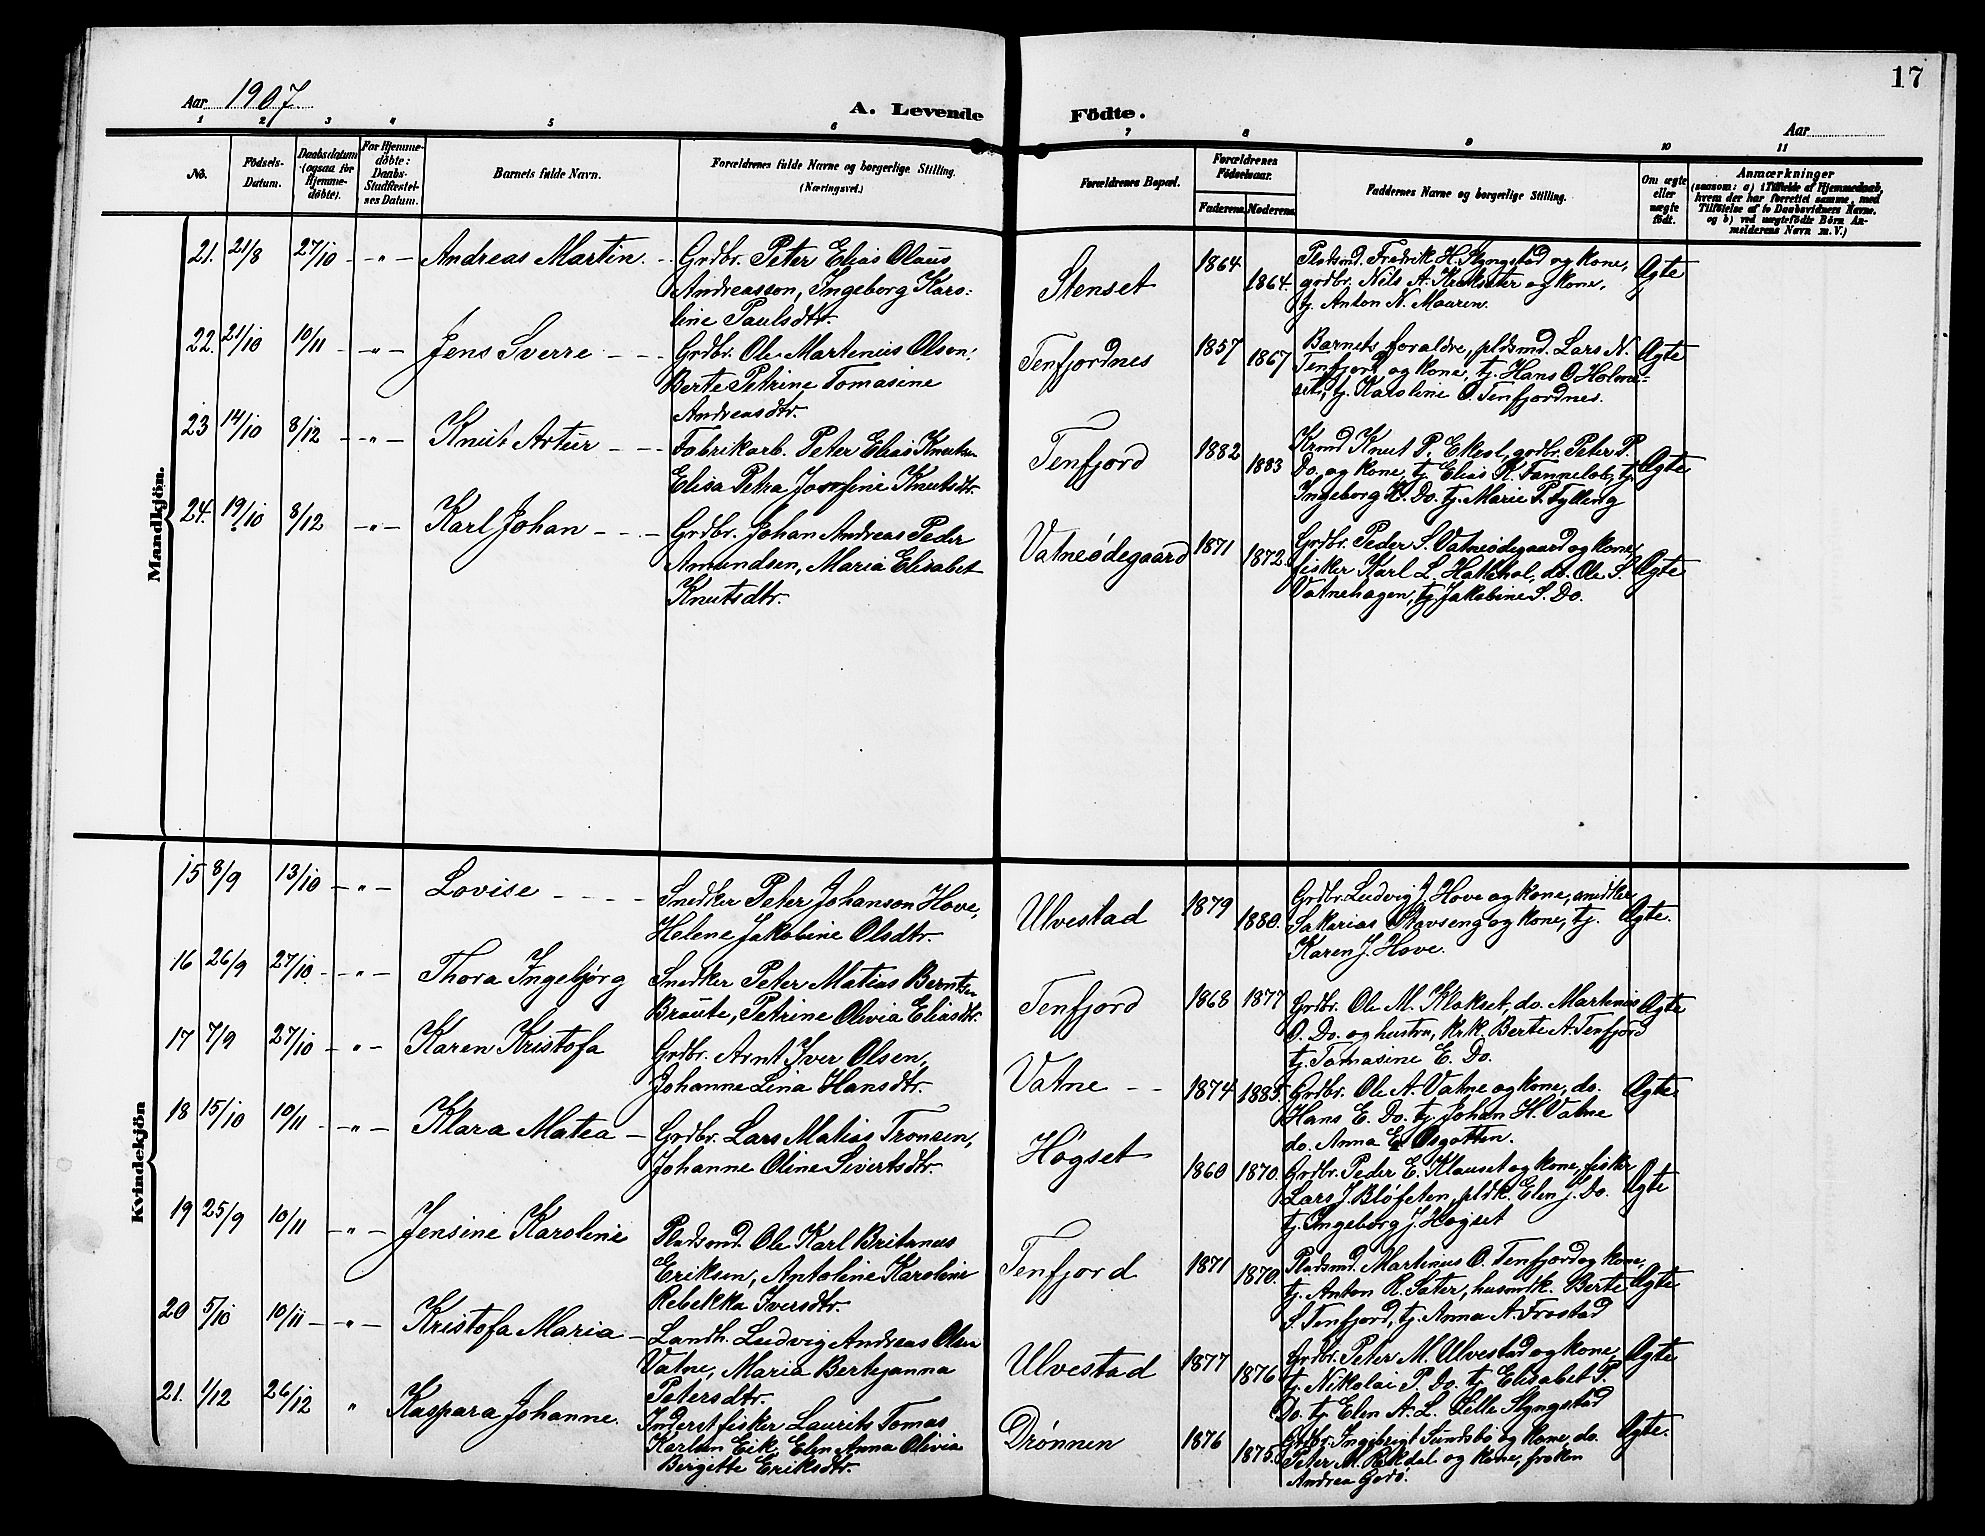 17
Aar 1907.
A. Levende Födte.
Aar
1 2 3 4 5 6 7 8 9 10 11
No.
Födsels-Datum.
Daabsdatum (ogsaa for Hjemme-døbte).
For Hjemme-døbte: Daabs-Stadfæstel-ses Datum.
Barnets fulde Navn.
Forældrenes fulde Navne og borgerlige Stilling.
(Næringsvei.)
Forældrenes Bopæl.
Forældrenes Fødselsaar.
Faderens. Moderens.
Faddernes Navne og borgerlige Stilling.
Om ægte eller uægte født.
Anmærkninger
(saasom: a) i Tilfælde af Hjemmedaab,
hvem der har forrettet samme, med
Tilføielse af to Daabsvidners Navne.
og b) ved uægtefødte Børn An-
melderens Navn m. V.)
Mandkjön.
21. 21/8 27/10 - " - Andreas Martin - - Grdbr. Peter Elias Olaus
Andreasson, Ingeborg Karo-
line Paulsdtr.
Stenset 1864 1864.
Pladsmd. Fredrik H. Slyngstad og kone,
grdbr. Nils A. Krokseter og kone,
tj. Anton N. Mauren.
Ægte
22. 21/10 10/11 - " - Jens Sverre - - - Grdbr. Ole Martenius Olsen,
Berte Petrine Tomasine
Andreasdtr.
Tenfjordnes 1857 1867
Barnets forældre, pldsmd. Lars N.
Tenfjord og kone, tj. Hans O. Holme-
set, tj. Karoline O. Tenfjordnes.
Ægte
23 14/10 8/12 - " - Knut Artur - - - Fabrikarb. Peter Elias Knutsen
Elisa Petra Josefine Knutsdtr.
Tenfjord 1882 1883
Krmd Knut P. Ekesl, grdbr. Peter P.
Do. og kone, tj. Elias K. tj.
Ingeborg K. Do. tj. Marie P. Tylling
Ægte
24. 19/10 8/12 - " - Karl Johan - - - Grdbr. Johan Andreas Peder
Amundsen, Maria Elisabet
Knutsdtr.
Vatneødegaard 1871 1872.
Grdbr. Peder S. Vatneødegaard og kone,
fisker Karl L. Hattehol, do. Ole S.
Vatnehagen, tj. Jakobine S. Do.
Ægte
Kvindekjön
15 8/9 13/10 - " - Lovise - - - - Snedker Peter Johanson Hove,
Helene Jakobine Olsdtr.
Ulvestad 1879 1880.
Grdbr. Ludvig J. Hove og kone, snedker
Sakarias Stavseng og kone, tj.
Karen J. Hove.
Ægte.
16 26/9 27/10 - " - Thora Ingebjørg Snedker Peter Matias Berntsen
Braute, Petrine Olivia Eliasdtr.
Tenfjord 1868 1877
Grdbr. Ole M. Klokset, do. Martinus
O. Do. og hustru, krk. Berte A. Tenfjord
tj. Tomasine E. Do.
Ægte
17 7/9 27/10 - " - Karen Kristofa Grdbr. Arnt Iver Olsen,
Johanne Lina Hansdtr.
Vatne - - 1874 1885.
Grdbr. Ole A. Vatne og kone, do.
Hans E. Do. tj. Johan H. Vatne
do. Anna E. Osgotten.
Ægte
18 15/10 10/11 - " - Klara Matea - Grdbr. Lars Matias Tronsen,
Johanne Oline Sivertsdtr.
Høgset 1860 1870.
Grdbr. Peder E. Klauset og kone, fisker
Lars J. Bløfeten, pldk. Elen J. Do.
tj. Ingeborg J. Høgset
Ægte
19 25/9 10/11 - " - Jensine Karoline Pladsmd. Ole Karl Britanus
Eriksen, Antoline Karoline
Rebekka Iversdtr.
Tenfjord 1871 1870.
Pladsmd. Martinus O. Tenfjord og kone,
tj. Anton R. Sæter, husmdk. Berte
S. Tenfjord, tj. Anna A. Frostad
Ægte
20 5/10 10/11 - " - Kristofa Maria - Landh. Ludvig Andreas Olsen
Vatne, Maria Bertejanna
Petersdtr.
Ulvestad 1877 1876
Grdbr. Peter M. Ulvestad og kone,
tj. Nikolai P. Do. tj. Elisabet P.
Do. tj. Elen A. L. Lille Slyngstad
Ægte
21. 1/12 26/12 " Kaspara Johanne. Inderst fisker Laurits Tomas
Karlsen Eik, Elen Anna Olivia
Bergitte Eriksdtr.
Drønnen 1876 1875.
Grdbr. Ingebrigt Sundsbø og kone, do.
Peter M. Rekdal og kone, frøken
Andrea Godø.
Ægte.